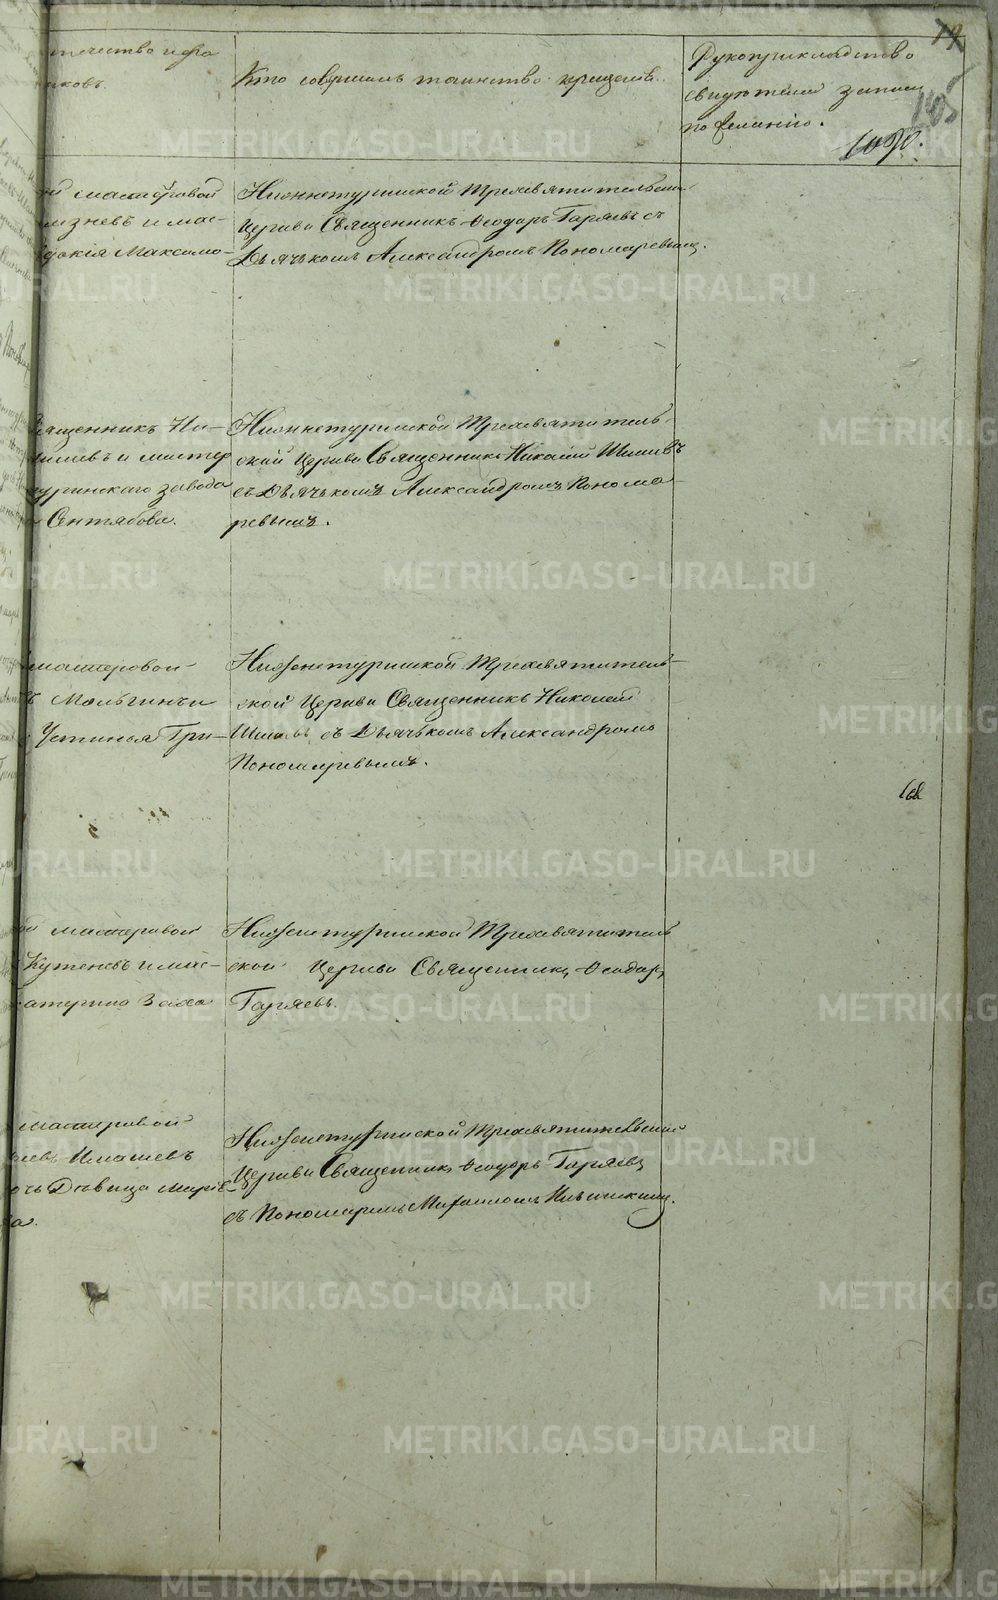 19
течество и фа
иковъ.
Кто совершалъ таинство крещенія.
Рукоприкладство
свидѣтелей записи
по желанію.
105
1090.
ой мастеровой
изневъ и мас-
докія Максимо-
Нижнетуринской Трехсвятительской
Церкви Священникъ Ѳеодоръ Гаряевъ съ
Дьячькомъ Александромъ Пономаревымъ.
Священникъ Ни-
Шишевъ и мастер
туринскаго завода
Сентябова.
Нижнетуринской Трехсвятитель-
ской Церкви Священникъ Николай Шишевъ
съ Дьячькомъ Александромъ Понома-
ревымъ.
мастеровой
ъ Мальгинъ и
Устинья Гри-
Нижнетуринской Трехсвятитель-
ской Церкви Священникъ Николай
съ Дьячькомъ Александромъ
Пономаревымъ.
ой мастеровой
Кутеневъ и мас-
катерина Заха
Нижнетуринской Трехсвятитель
ской Церкви Священникъ Ѳеодоръ
Гаряевъ.
мастеровой
Имашевъ
очь Дѣвица Марѳ
ва.
Нижнетуринской Трехсвятительской
Церкви Священникъ Ѳеодоръ Гаряевъ
съ Пономаремъ Михаиломъ Ильинскимъ.
METRIKI.GASO-URAL.RU